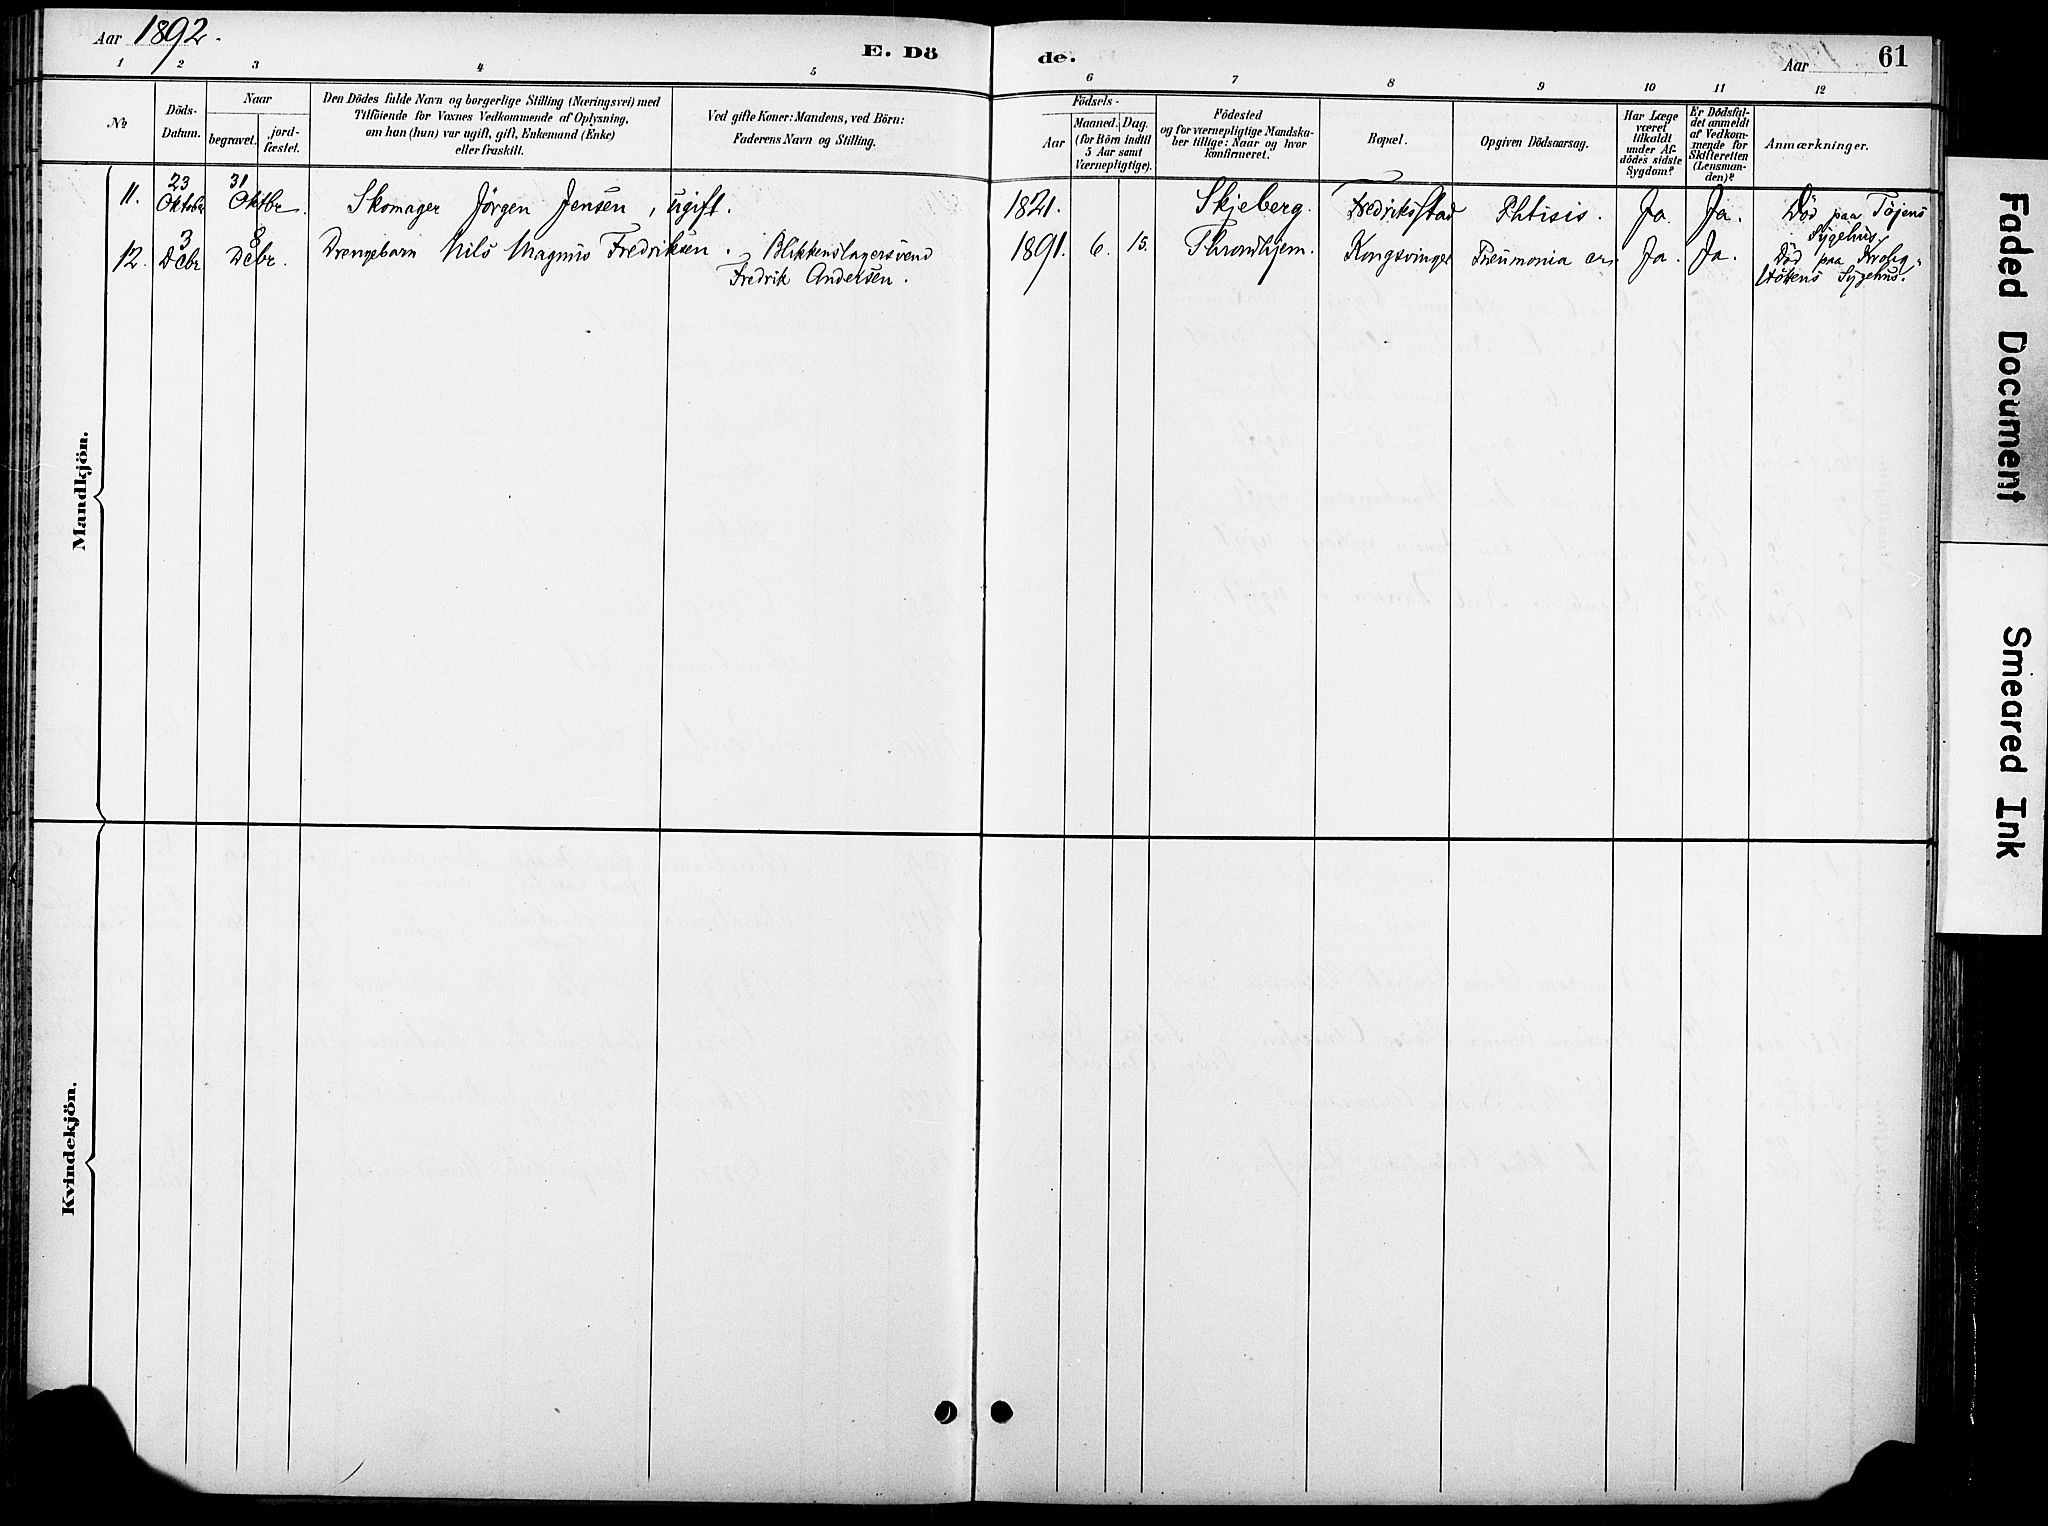 Aar 1892.
E. Dö
de.
Aar
61
1 2 3 4 5 6 7 8 9 10 11 12
No
Döds-
Datum.
Naar
begravet.
jord-
fæstet.
Den Dödes fulde Navn og borgerlige Stilling (Næringsvei) med
Tilföiende for Voxnes Vedkommende af Oplysning,
om han (hun) var ugift, gift, Enkemand (Enke)
eller fraskilt.
Ved gifte Koner: Mandens, ved Börn:
Faderens Navn og Stilling.
Födsels-
Aar
Maaned. Dag.
(for Börn indtil
5 Aar samt
Værnepligtige).
Födested
og for værnepligtige Mandska-
ber tillige: Naar og hvor
konfirmeret.
Bopæl.
Opgiven Dödsaarsag.
Har Læge
været
tilkaldt
under Af-
dödes sidste
Sygdom?
Er Dödsfal-
det anmeldt
af Vedkom-
mende for
Skifteretten
(Lensman-
den)?
Anmærkninger.
11. 23 Oktober 31 Oktbr. Skomager Jörgen Jensen, ugift. 1821. Skjeberg. Fredriksstad Phtisis. Ja. Ja. Död paa Töjens
Sygehus.
12. 3 Dcbr 8 Dcbr. Drengebarn Nils Magnus Fredriksen. Blikkenslagersvend
Fredrik Andersen.
1891. 6. 15. Throndhjem. Kongsvinger Pneumonia Ja. Ja. Död paa Krohg-
stöttens Sygehus.
Mandkjön.
Kvindekjön.
Faded Document
Smeared Ink